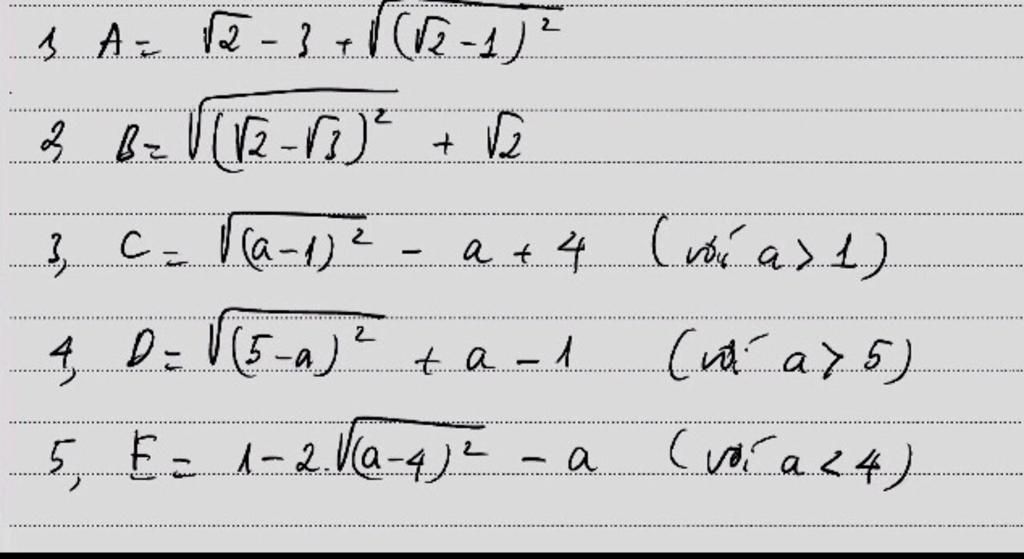 1, A = √2 - 3 + √((√2 - 1)²)
2, B = √((√2 - √3)²) + √2
3, C = √((a - 1)²) - a + 4 (với a > 1)
4, D = √((5 - a)²) + a - 1 (với a > 5)
5, E = 1 - 2.√((a - 4)²) - a (với a < 4)